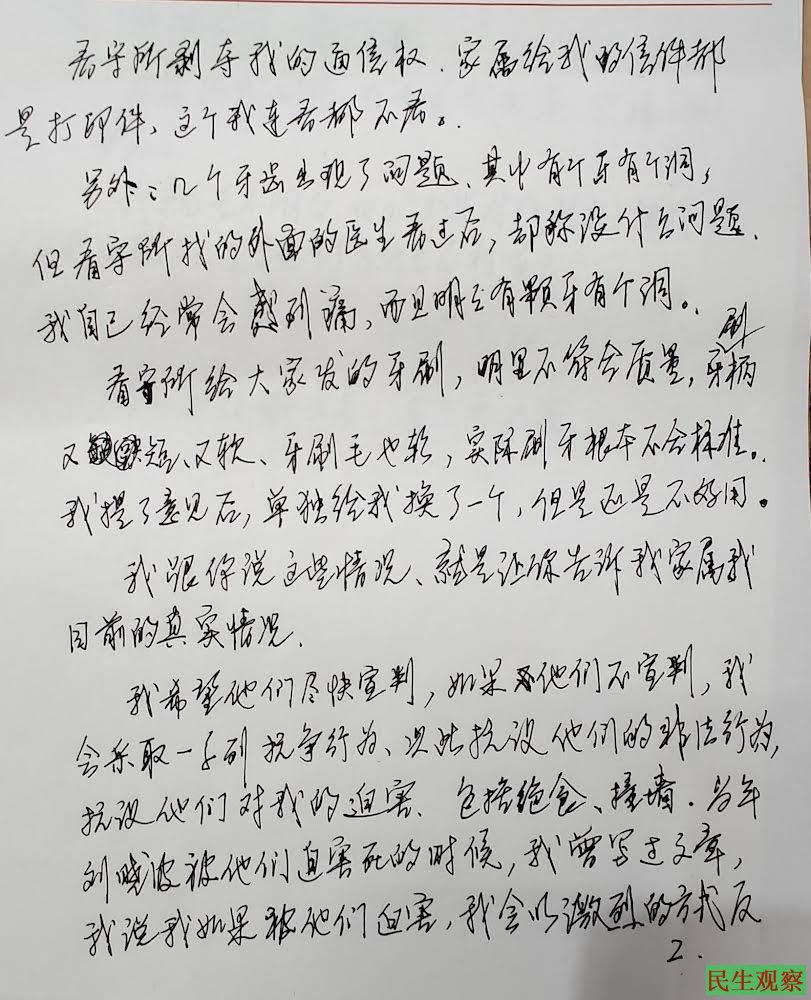 看守所剥夺我的通信权.家属给我的信件都
是打印件、这个我连看都不看。
另外:几个牙齿出现了问题、其中有个牙有个洞,
但看守所找的外面的医生看过后,却称没什么问题.
我自己经常会感到痛,而且明明有颗牙有个洞。
看守所给大家发的牙刷,明显不符合质量,牙刷柄
又短、又软、牙刷毛也软,实际刷牙根本不会标准。
我提了意见后,单独给我换了一个,但是还是不好用。
我跟你说这些情况、就是让你告诉我家属我
目前的真实情况.
我希望他们尽快宣判,如果他们不宣判,我
会采取一系列抗争行为、以此抗议他们的非法行为,
抗议他们对我的迫害、包括绝食、撞墙.当年
刘晓波被他们迫害死的时候,我曾写过文章,
我说我如果被他们迫害,我会以激烈的方式反
2.
民生观察